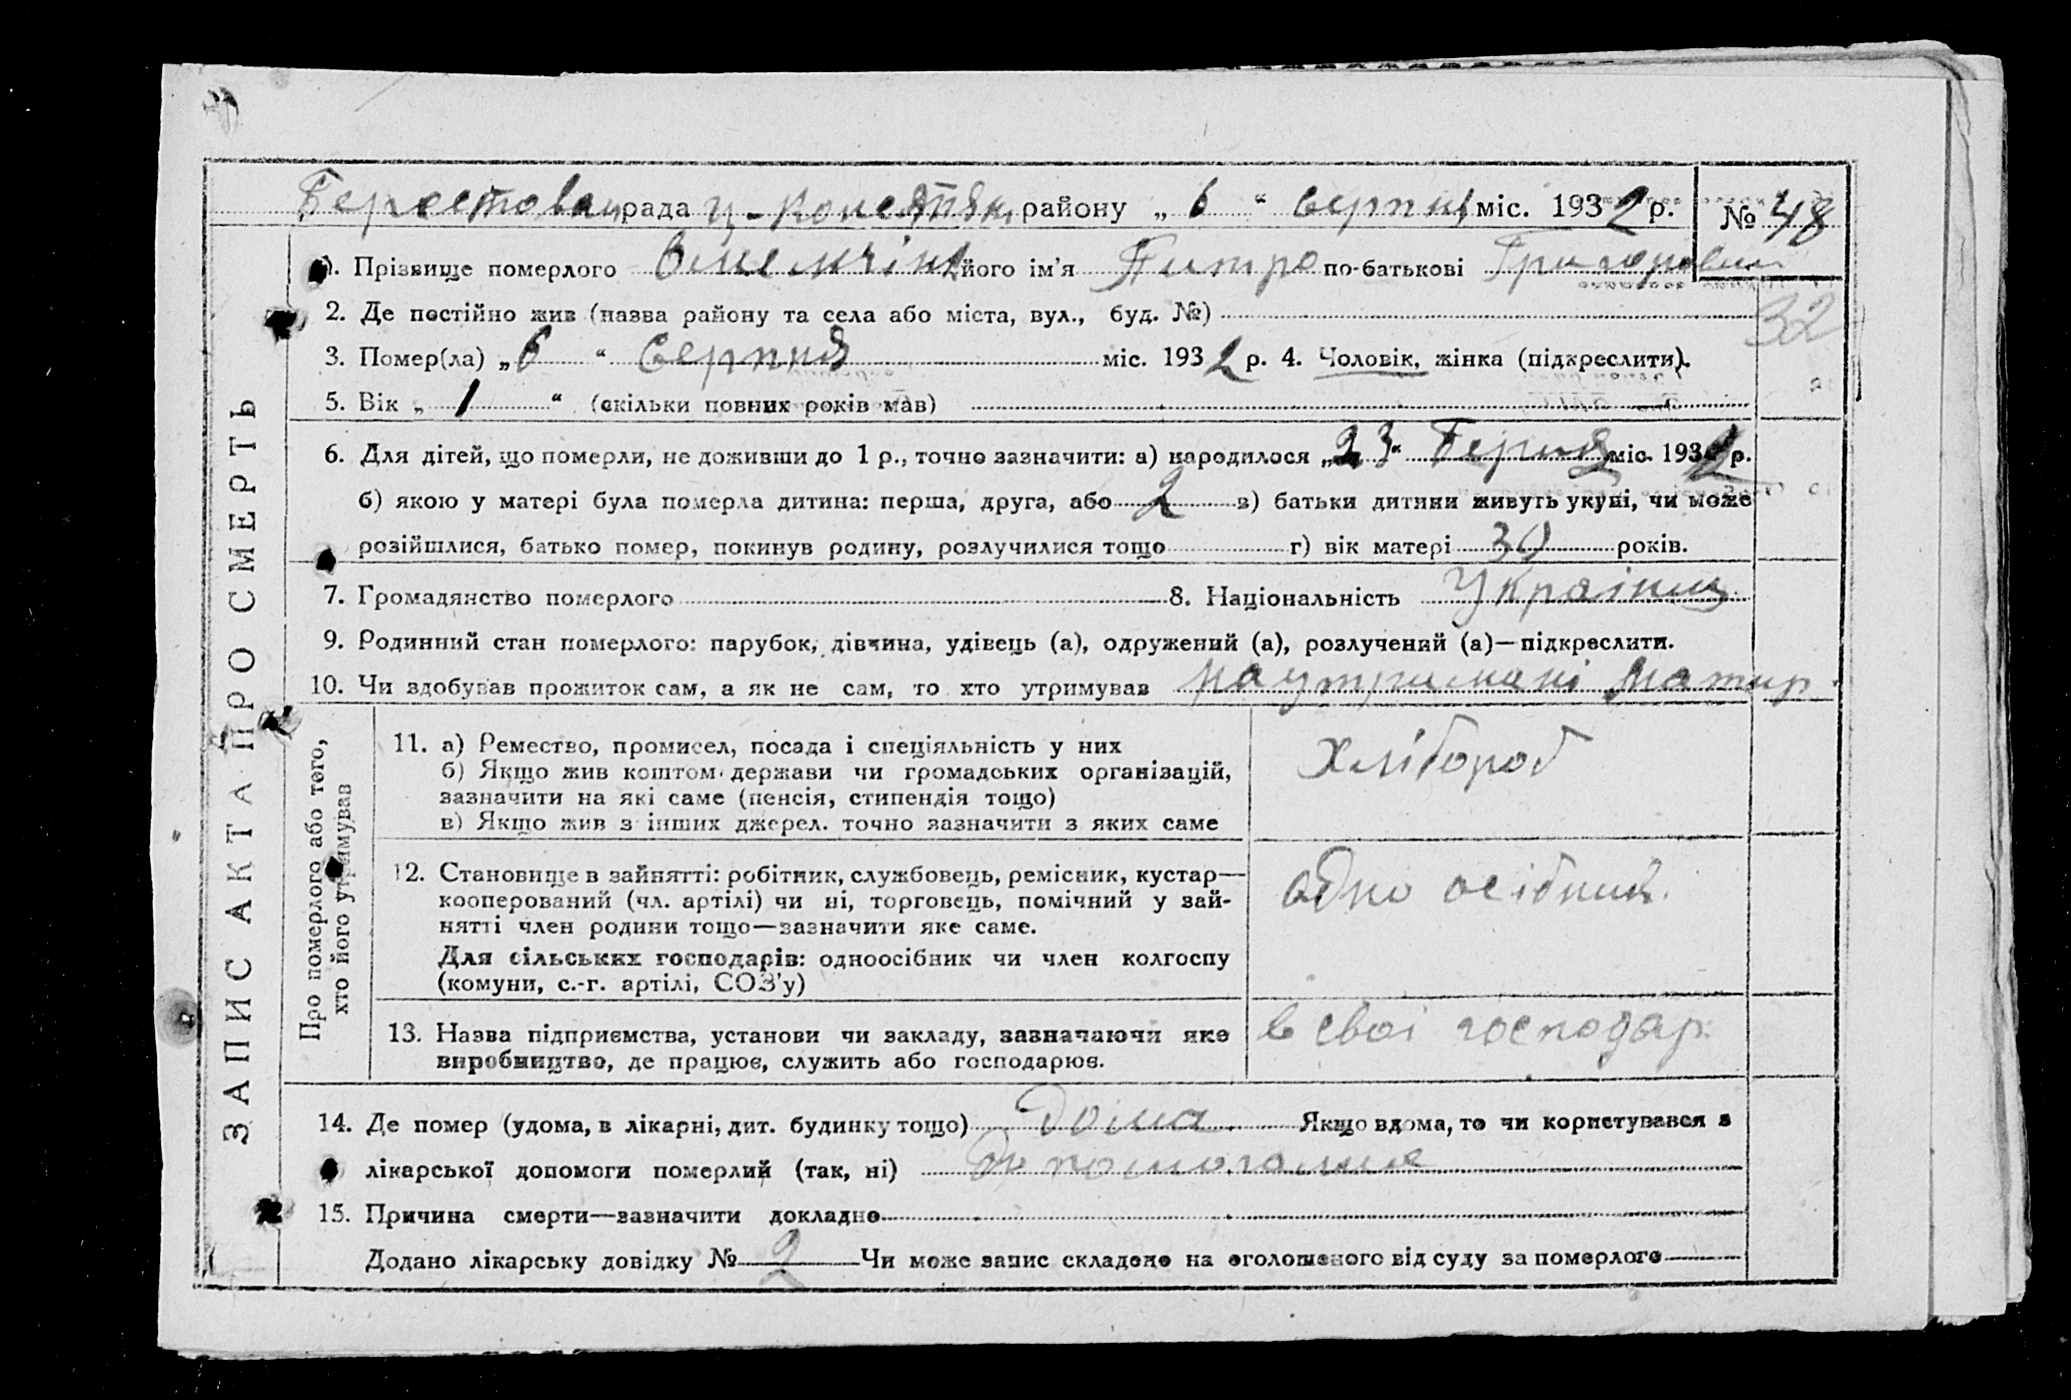 Берестовец рада района „ 6 “ Серпня міс. 1932 р. № 48
1. Прізвище померлого його ім'я Питро по-батькові Григорович
32
2. Де постійно жив (назва району та села або міста, вул., буд. №)
3. Помер(ла) „ 6 “ Серпня міс. 1932 р. 4. Чоловік, жінка (підкреслити).
5. Вік „ 1 “ (скільки повних років мав)
6. Для дітей, що померли, не доживши до 1 р., точно зазначити: а) народилося „ 23 “ міс. 1932 р.
б) якою у матері була померла дитина: перша, друга, або 2 в) батьки дитини живуть укупі, чи може
розійшлися, батько помер, покинув родину, розлучилися тощо г) вік матері 30 років.
7. Громадянство померлого 8. Національність Украінец
9. Родинний стан померлого: парубок, дівчина, удівець (а), одружений (а), розлучений (а)—підкреслити.
10. Чи здобував прожиток сам, а як не сам, то хто утримував на утримані матир.
ЗАПИС АКТА ПРО СМЕРТЬ
Про померлого або того,
хто його утримував
11. а) Ремество, промисел, посада і спеціяльність у них
б) Якщо жив коштом держави чи громадських організацій,
зазначити на які саме (пенсія, стипендія тощо)
в) Якщо жив з інших джерел. точно зазначити з яких саме
Хлібороб
12. Становище в зайнятті: робітник, службовець, ремісник, кустар—
кооперований (чл. артілі) чи ні, торговець, помічний у зай-
нятті член родини тощо—зазначити яке саме.
Для сільських господарів: одноосібник чи член колгоспу
(комуни, с.-г. артілі, СОЗ'у)
одно осібний.
13. Назва підприємства, установи чи закладу, зазначаючи яке
виробництво, де працює, служить або господарює.
в своі господар.
14. Де помер (удома, в лікарні, дит. будинку тощо) Дома. Якщо вдома, то чи користувався з
лікарської допомоги померлий (так, ні)
15. Причина смерти—зазначити докладно
Додано лікарську довідку № 2 Чи може запис складено на оголошеного від суду за померлого